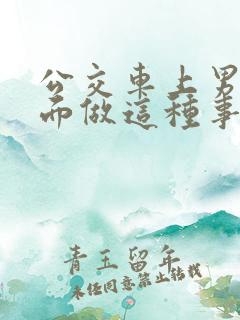 公交車上男
而做這種事
青玉留年
未经同意禁止转载